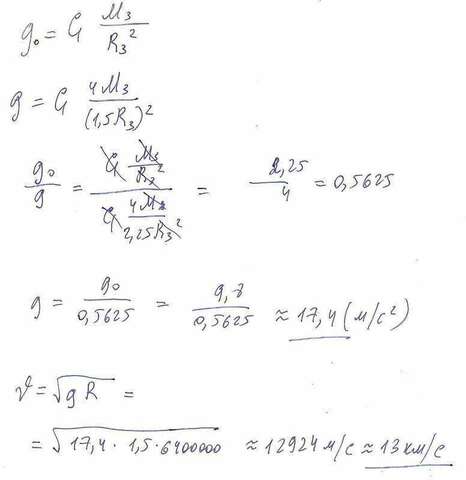 g₀ = G M₃ / R₃²
g = G 4M₃ / (1,5R₃)²
g₀ / g = (G M₃ / R₃²) / (G 4M₃ / 2,25R₃²) = 2,25 / 4 = 0,5625
g = g₀ / 0,5625 = 9,8 / 0,5625 ≈ 17,4 (м/с²)
𝜗 = √(g R) =
= √(17,4 · 1,5 · 6400000) ≈ 12924 м/с ≈ 13 км/с